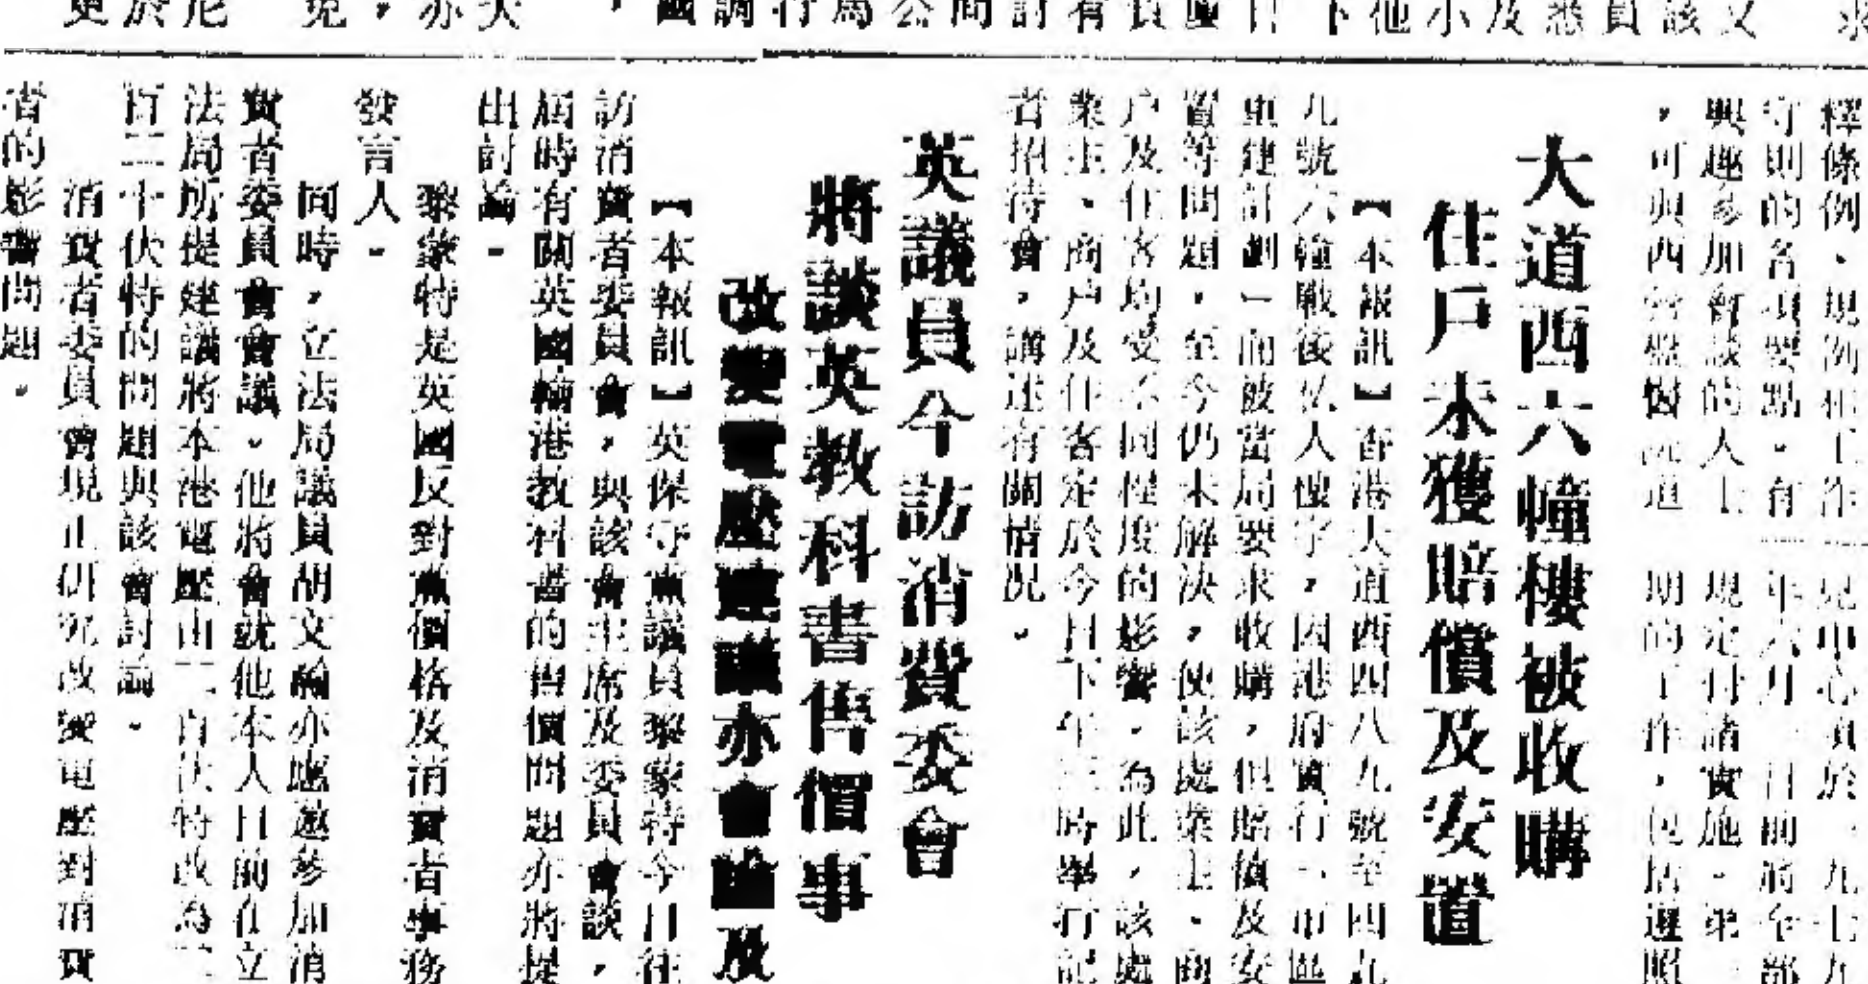 釋條例、現例和工作
守則的各項要點。有
興趣參加會談的人士
，可與西營盤
大道西六幢樓被收購
住戶未獲賠償及安置
【本報訊】香港大道西四八九號至四九
九號六幢戰後私人樓宇，因港府實行「市區
重建計劃」而被當局要求收購，但賠償及安
置等問題，至今仍未解決，使該處業主、商
户及住客均受不同程度的影響，為此，該處
業主、商户及住客定於今日下午三時舉行記
者招待會，講述有關情況。
英議員今訪消費委會
將談英教科書售價事
改變電壓建議亦會論及
【本報訊】英保守黨議員黎蒙特今日往
訪消費者委員會，與該會主席及委員會談，
屆時有關英國輸港教科書的售價問題亦將提
出討論。
黎蒙特是英國反對黨價格及消費者事務
發言人。
同時，立法局議員胡文翰亦應邀參加消
費者委員會會議。他將會就他本人日前在立
法局所提建議將本港電壓由二百伏特改為二
百二十伏特的問題與該會討論。
消費者委員會現正研究改變電壓對消費
者的影響問題。